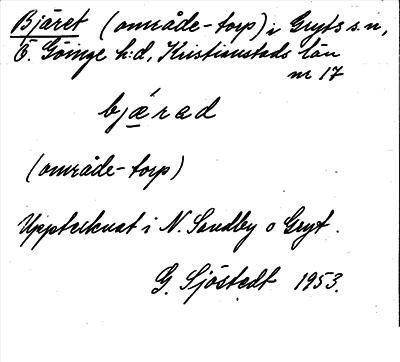 Bjäret (område-torp) i Gryts s:n,
Ö. Göinge h:d, Kristianstads län
nr 17
bjǽrad
(område-torp)
Upptecknat i N. Sandby o Gryt.
G. Sjöstedt 1953.